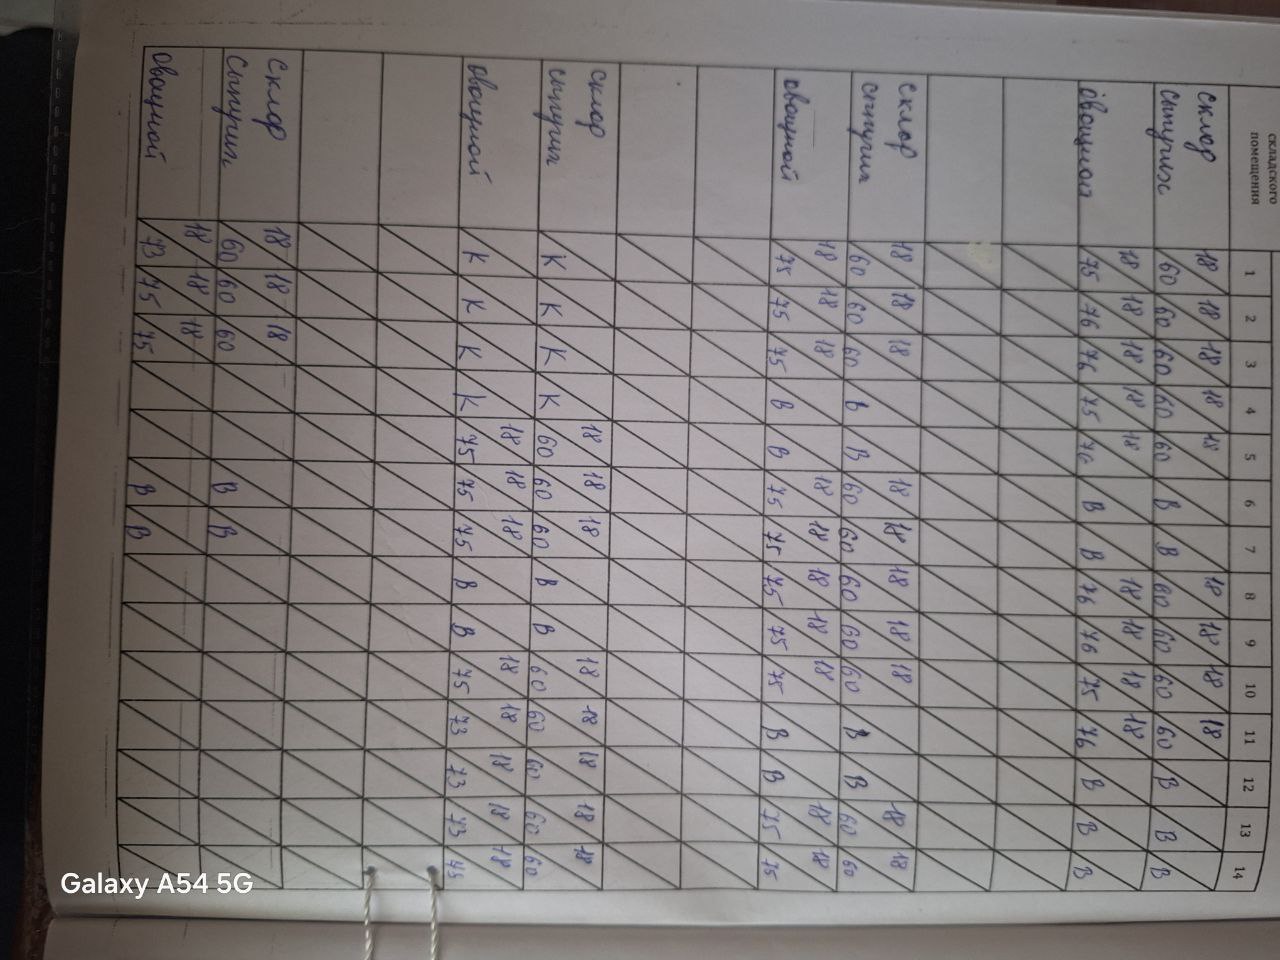 складского
помещения
1 2 3 4 5 6 7 8 9 10 11 12 13 14
склад 18 18 18 18 18 18 18 18 18
сыпучих 60 60 60 60 60 В В 60 60 60 60 В В В
18 18 18 18 18 18 18 18 18
овощной 75 76 76 75 76 В В 76 76 75 76 В В В
склад 18 18 18 18 18 18 18 18 18 18
сыпучих 60 60 60 В В 60 60 60 60 60 В В 60 60
18 18 18 18 18 18 18 18 18 18
овощной 75 75 75 В В 75 75 75 75 75 В В 75 75
склад 18 18 18 18 18 18 18 18
сыпучих К К К К 60 60 60 В В 60 60 60 60 60
18 18 18 18 18 18 18 18
овощной К К К К 75 75 75 В В 75 73 73 73
склад 18 18 18
сыпучих 60 60 60 В В
18 18 18
овощной 73 75 75 В В
Galaxy A54 5G